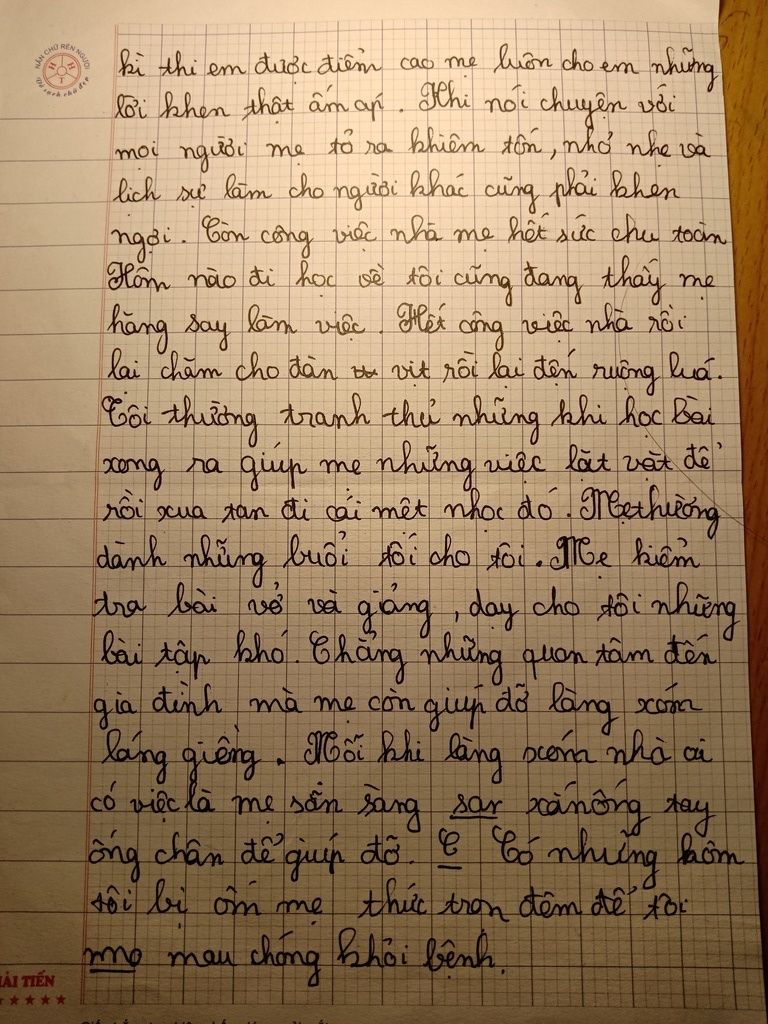 NẮN CHỮ RÈN NGƯỜI
H H T
Vở sạch chữ đẹp
kì thi em được điểm cao mẹ luôn cho em những
lời khen thật ấm áp. Khi nói chuyện với
mọi người mẹ tỏ ra khiêm tốn, nhỏ nhẹ và
lịch sự làm cho người khác cũng phải khen
ngợi. Còn công việc nhà mẹ hết sức chu toàn
Hôm nào đi học về tôi cũng đang thấy mẹ
hăng say làm việc. Hết công việc nhà rồi
lại chăm cho đàn vịt rồi lại đến ruộng luá.
Tôi thường tranh thủ những khi học bài
xong ra giúp mẹ những việc lặt vặt để
rồi xua tan đi cái mệt nhọc đó. Mẹ thường
dành những buổi tối cho tôi. Mẹ kiểm
tra bài vở và giảng, dạy cho tôi những
bài tập khó. Chẳng những quan tâm đến
gia đình mà mẹ còn giúp đỡ làng xóm
láng giềng. Mỗi khi làng xóm nhà ai
có việc là mẹ sẵn sàng sar xắn ống tay
ống chân để giúp đỡ. C Có những hôm
tôi bị ốm mẹ thức trọn đêm để tôi
mau chóng khỏi bệnh.
HẢI TIẾN